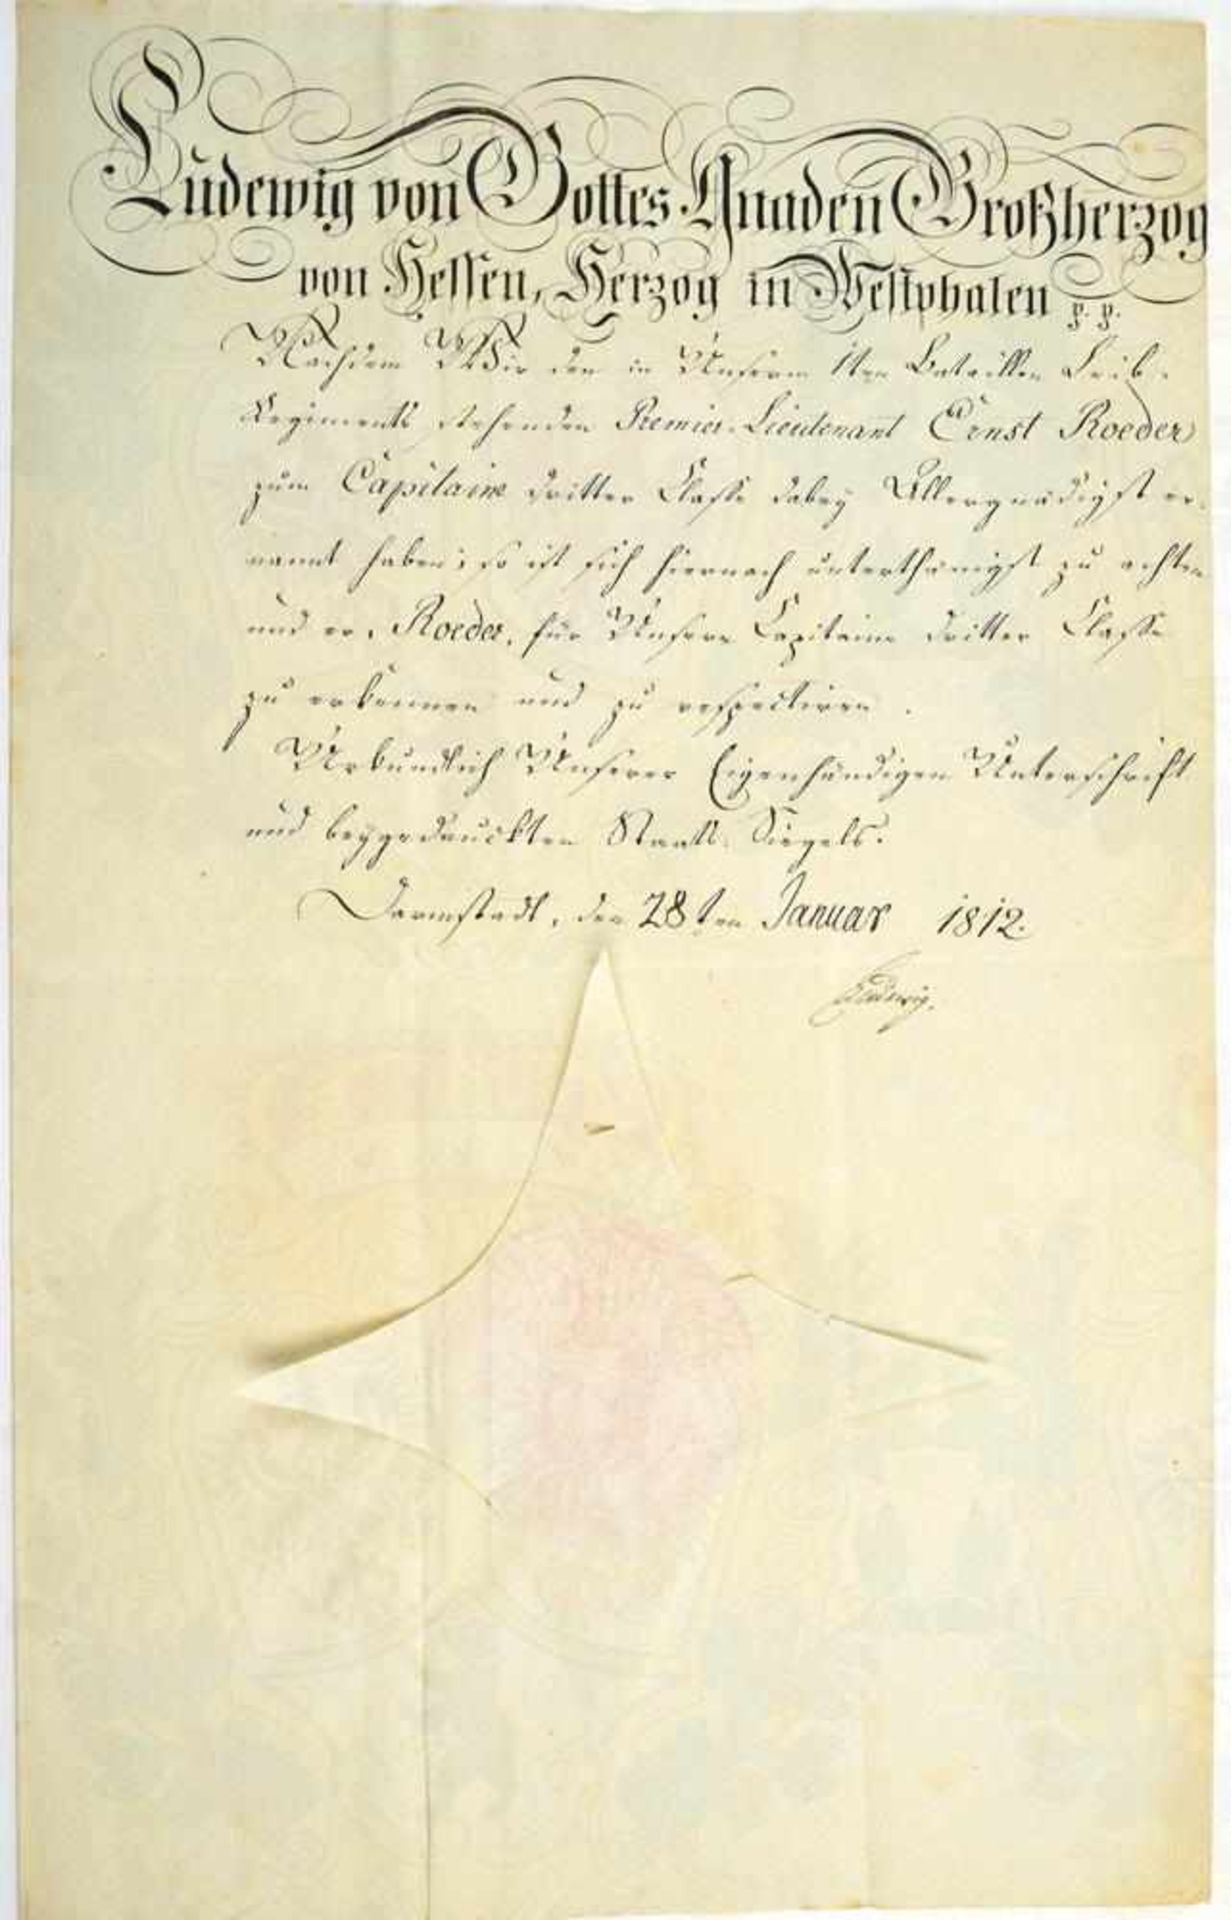 Ludewig von Gottes Gnaden Großherzog
von Hessen, Herzog in Westphalen p. p.
Nachdem Wir den in Unserm 1ten Bataillon Leib-
Regiments stehenden Premier-Lieutenant Ernst Roeder
zum Capitaine dritter Classe dabey Allergnädigst er-
nannt haben; so ist sich hiernach unterthänigst zu achten
und er, Roeder, für Unsern Capitaine dritter Classe
zu erkennen und zu respectiren.
Urkundlich Unserer Eigenhändigen Unterschrift
und beygedruckten Staats-Siegels.
Darmstadt, den 28ten Januar 1812.
Ludewig.